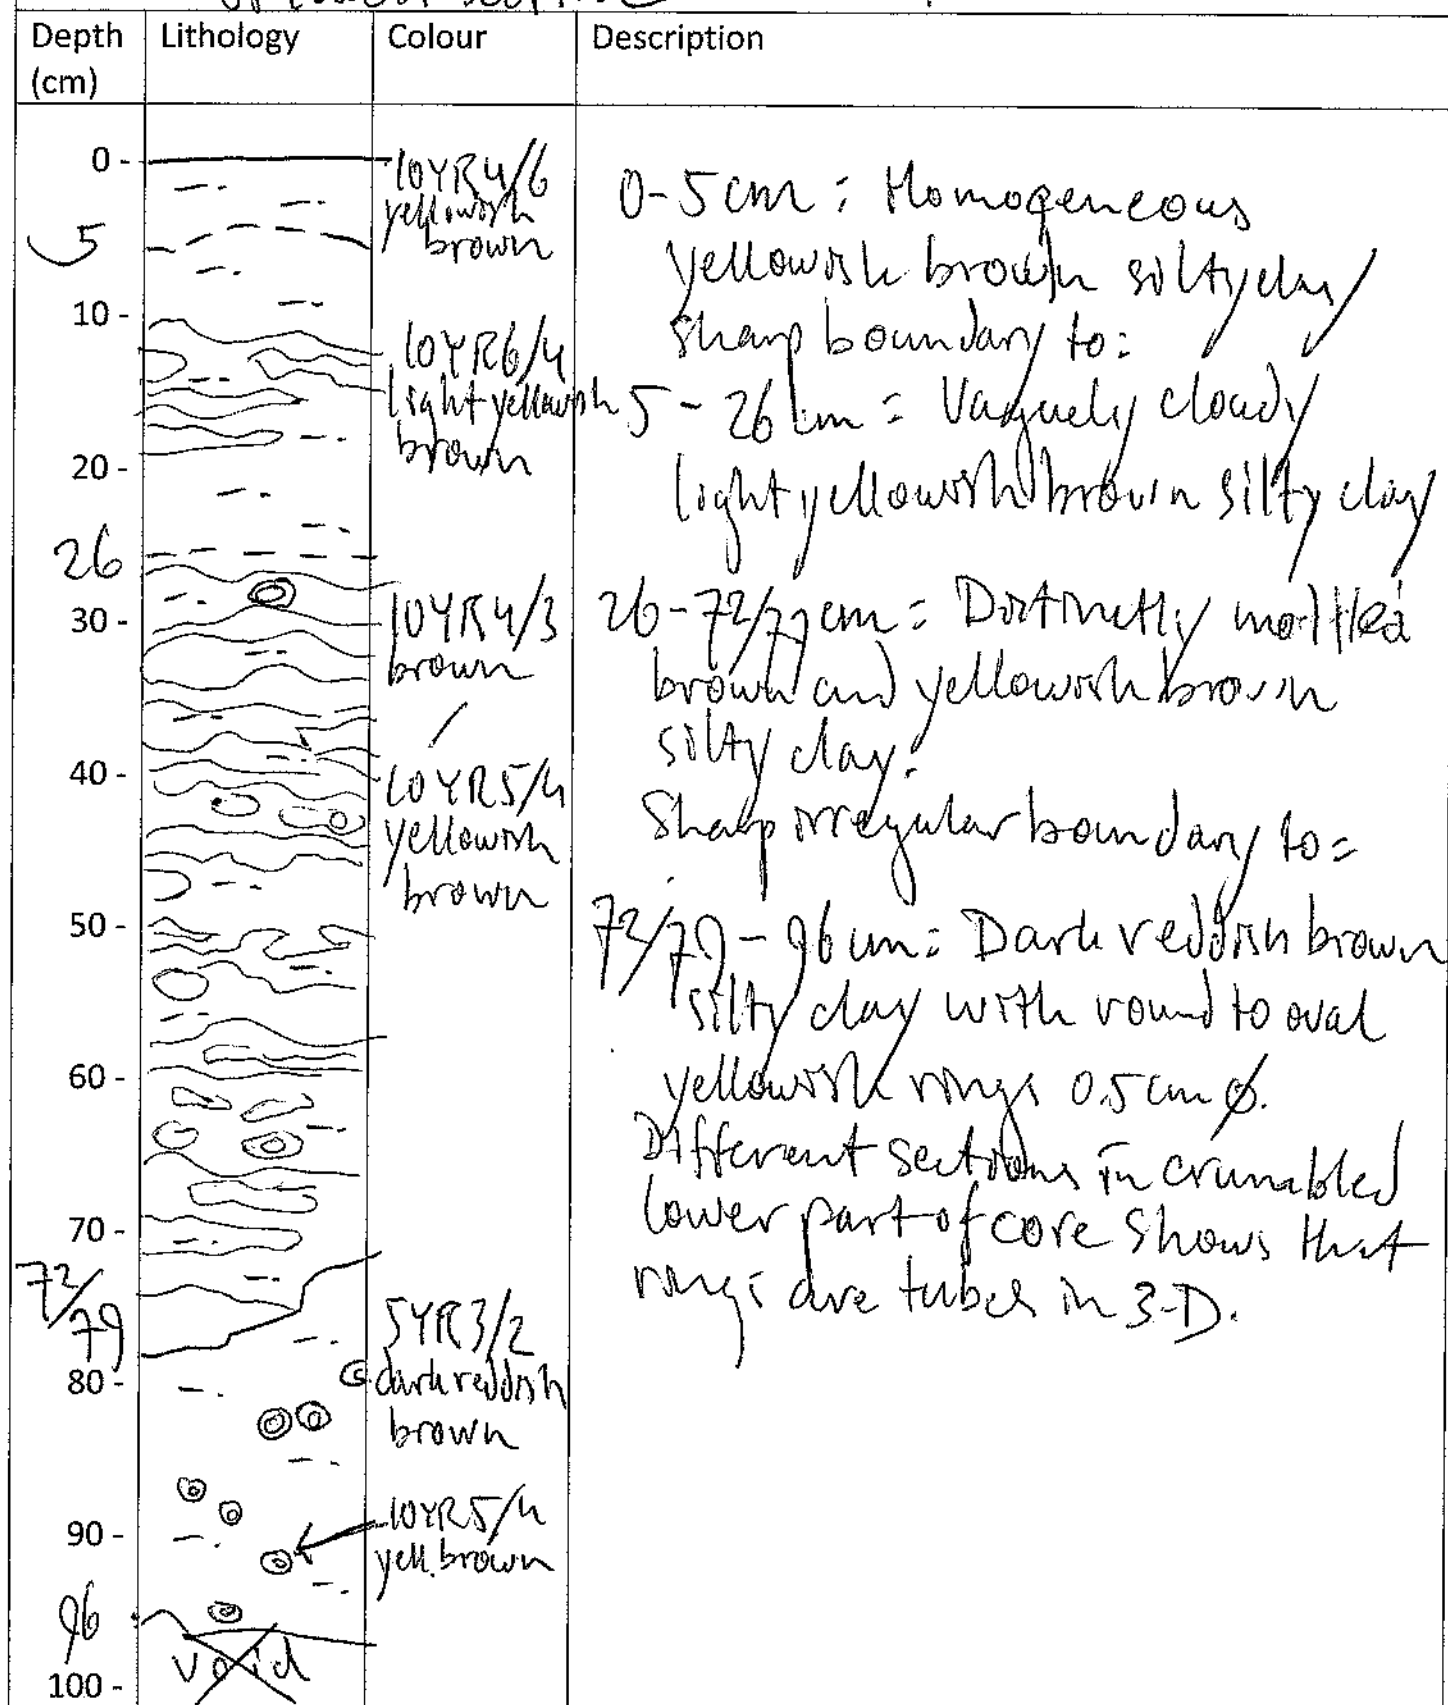 Depth Lithology Colour Description
(cm)
0 -
5
10 -
20 -
26
30 -
40 -
50 -
60 -
70 -
72/
79
80 -
90 -
96
100 -
void
10YR4/6
yellowish
brown
10YR6/4
light yellowish
brown
10YR4/3
brown
/
10YR5/4
yellowish
brown
5YR3/2
dark reddish
brown
10YR5/4
yell. brown
0-5cm: Homogeneous
yellowish brown silty clay
sharp boundary to:
5-26cm: Vaguely cloudy
light yellowish brown silty clay
26-72/79cm: Distinctly mottled
brown and yellowish brown
silty clay.
Sharp irregular boundary to:
72/79-96cm: Dark reddish brown
silty clay with round to oval
yellowish rings 0.5cm ø.
Different sections in crumbled
lower part of core shows that
rings are tubes in 3-D.